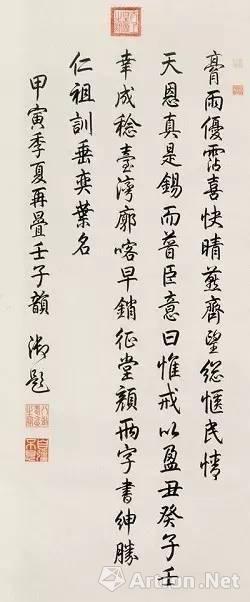 膏雨優霑喜快晴茲齊望總愜民情
天恩真是錫而普臣意曰惟戒以盈丑癸子壬
幸成稔臺灣廓喀早銷征堂顏兩字書紳勝
仁祖訓垂奕葉名
甲寅季夏再疊壬子韻 御題
Artron.Net